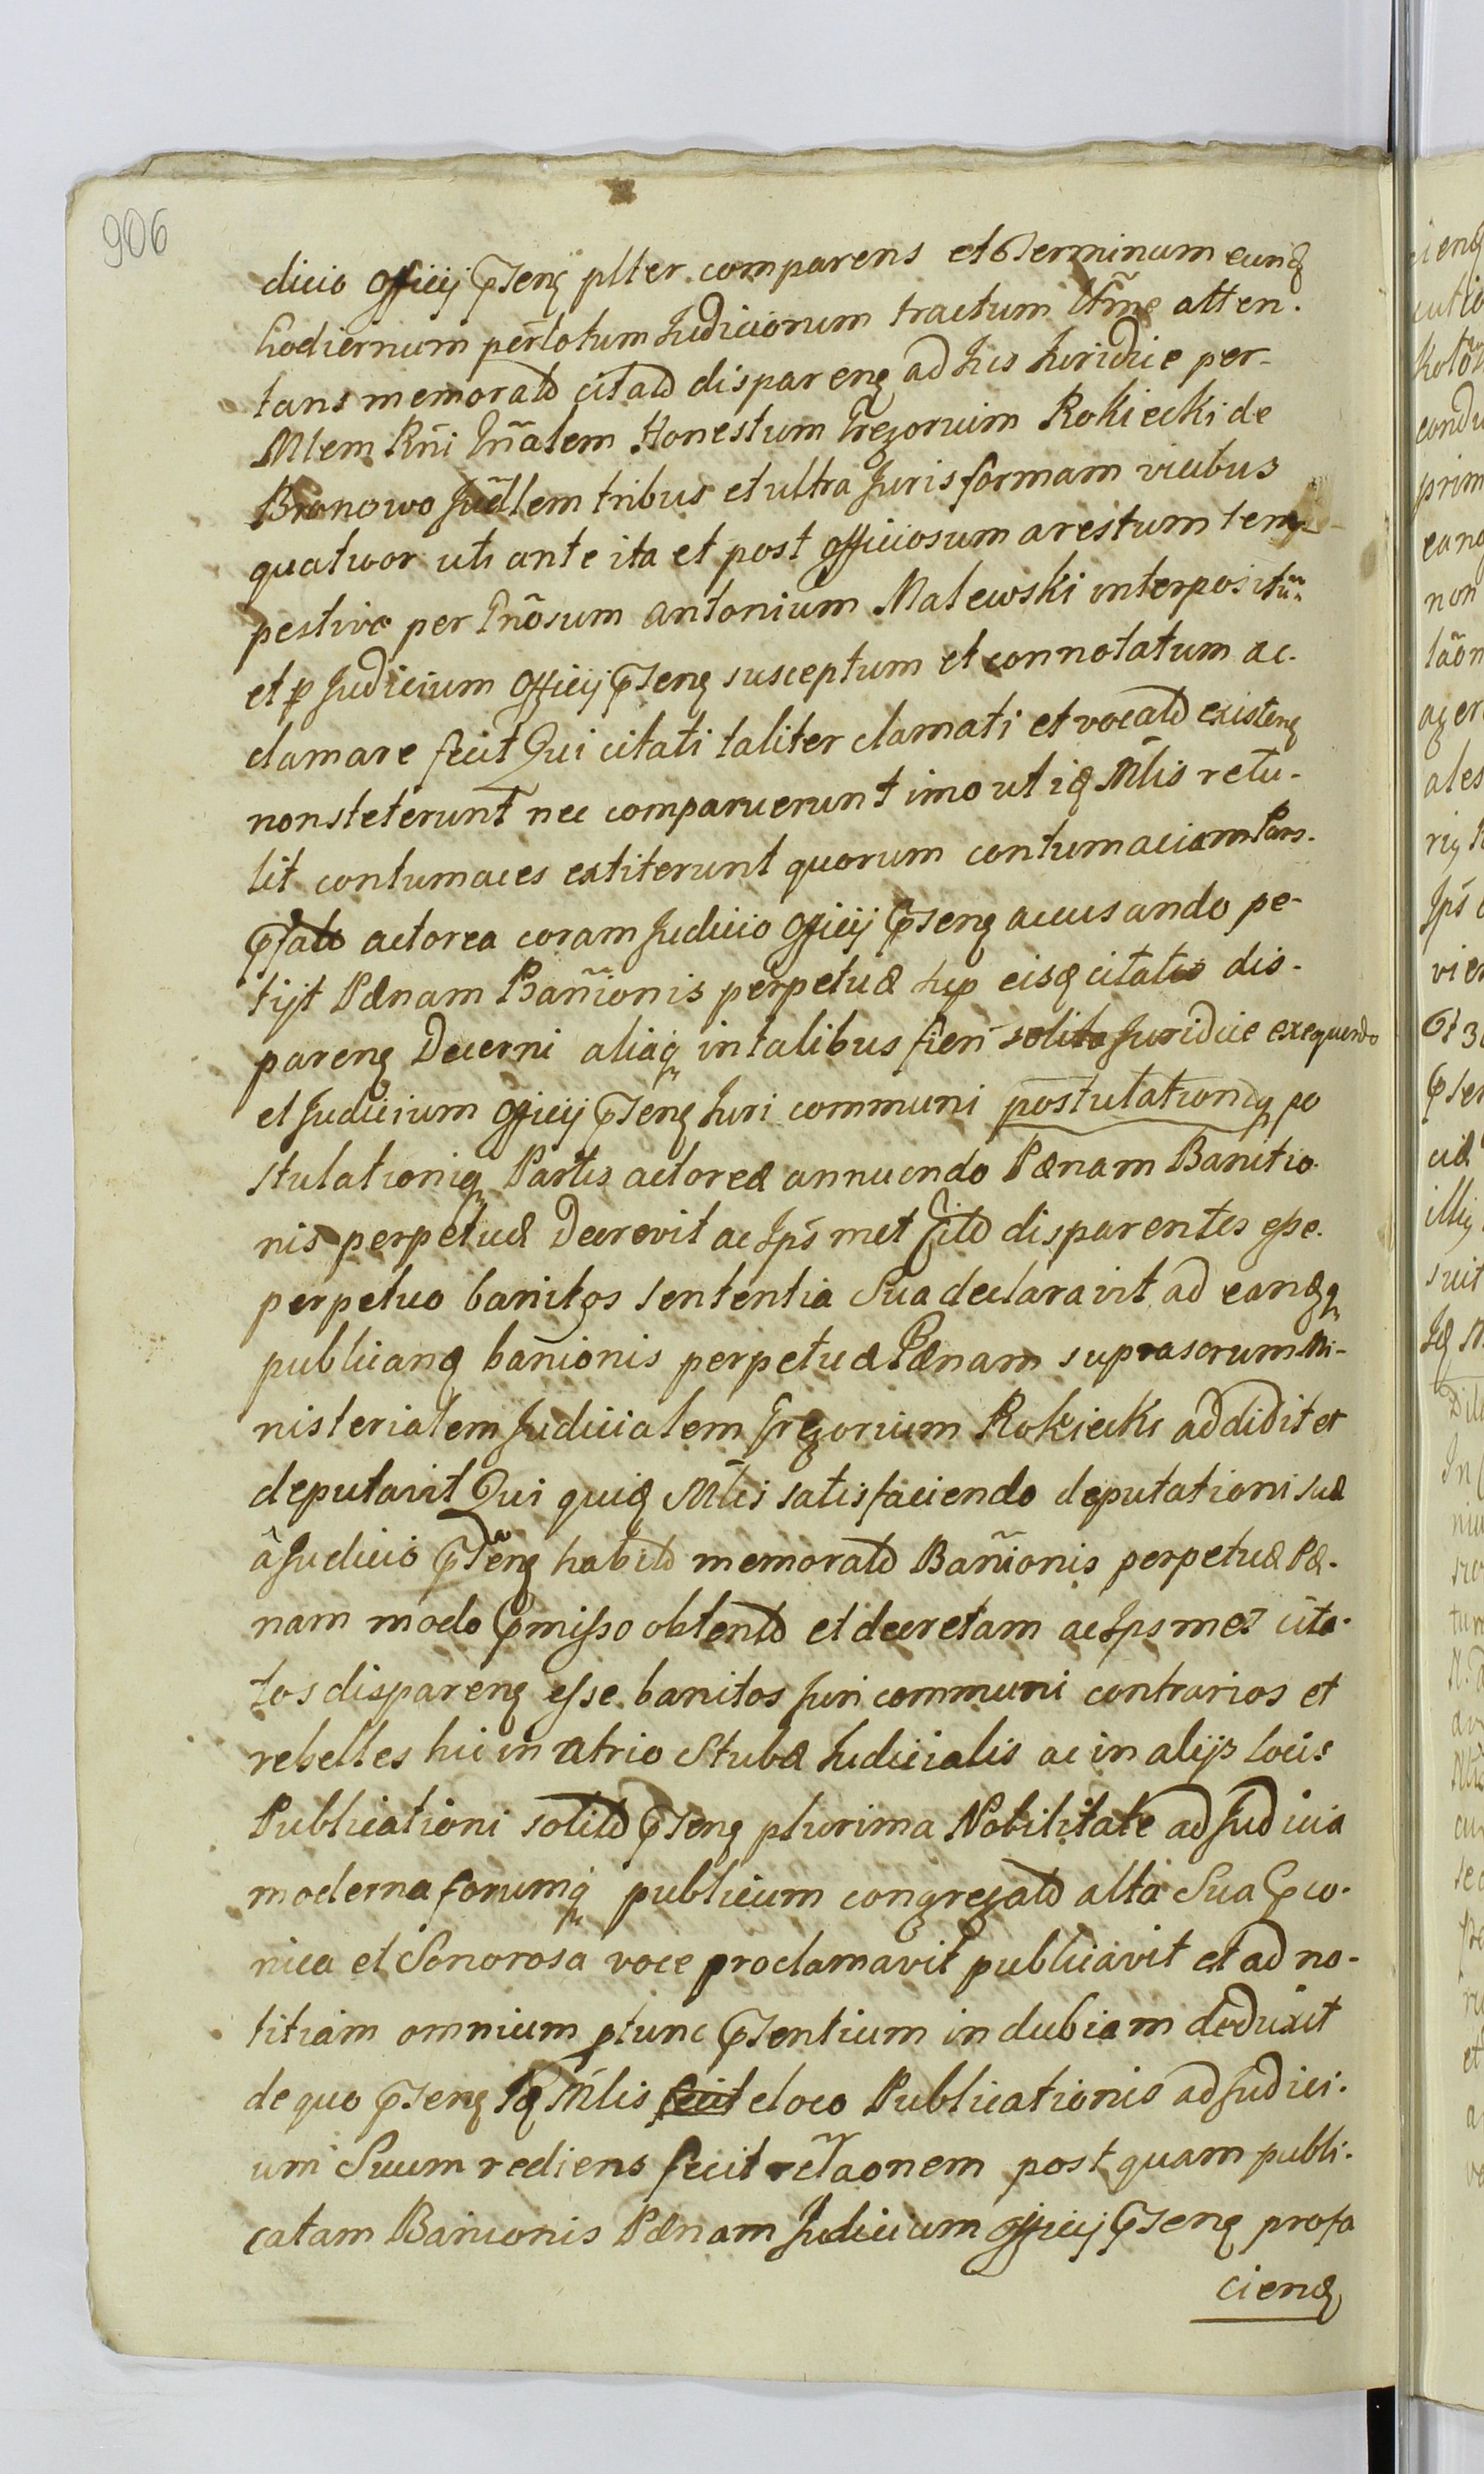 906
dicio officij pñseng pllter comparens et Terminum eund
hodiernum per totum Judiciorum tractum Ltme atten-
tans memoratd citatd dispareng ad Jus Juridice per
Mlem Rñi Gñalem Honestum Gregorium Rokiecki de
Bronowo Judlem tribus et ultra Juris formam vicibus
quatuor uti ante ita et post officiosum arestum tem-
pestive per Gnosum antonium Malewski interpositũ
et p Judicium officij pñseng susceptum et connotatum ac-
clamare fecit Qui citati taliter clamati et vocatd existeng
non steterunt nec comparuerunt imo ut id Mlis retu-
lit contumaces extiterunt quorum contumaciam Pars
pfatd actorea coram Judicio officij pñseng accusando pe-
tijt Pænam Bañionis perpetuæ sup eisd citatis dis-
pareng Decerni aliaq in talibus fieri solita Juridice exequendo
et Judicium officij pñseng Juri communi postulationiq po
stulationiq Partis actoreæ annuendo Pænam Banitio-
nis perpetuæ Decrevit ac Ips met Citd disparentes esse
perpetuo banitos sententia Sua declaravit ad eandq
publicand bañionis perpetuæ Pænam suprascrum Mi-
nisterialem Judicialem Gregorium Rokiecki addidit et
deputavit Qui quid Mlis satisfaciendo deputationi suæ
â Judicio pñseng habitd memoratd Bañionis perpetuæ Pæ-
nam modo pmisso obtentd et decretam ac Ipsmet cita-
tos dispareng esse banitos Juri communi contrarios et
rebelles hic in atrio Stubæ Judicialis ac in alijs locis
Publicationi solitd pñseng plurima Nobilitate ad Judicia
moderna forumq publicum congregatd alta Sua pco-
nica et Sonorosa voce proclamavit publicavit et ad no-
titiam omnium ptunc pñsentium indubiam deduxit
de quo pñseng Id Mlis fecit eloco Publicationis ad Judici-
um Suum rediens fecit relãonem post quam publi-
catam Banionis Pænam Judicium officij pñseng profa
ciend